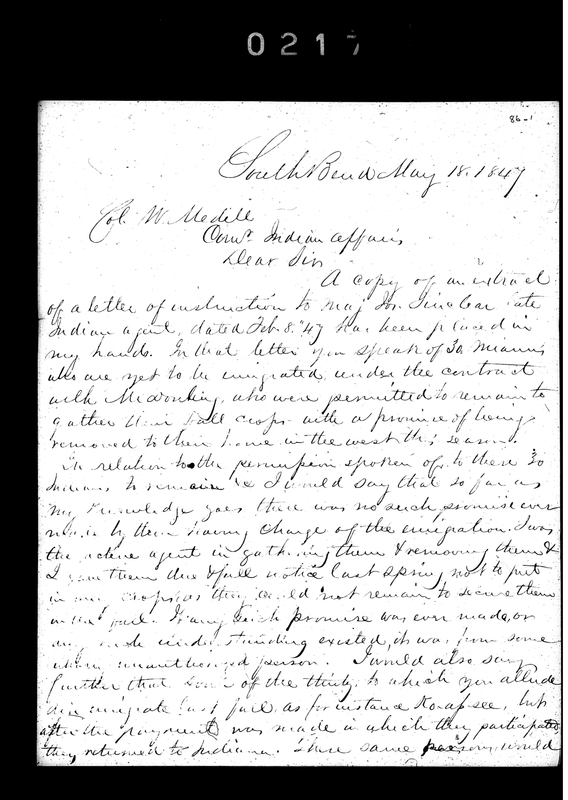 0217
86-1
South Bend May 18. 1847
Col. W. Medill
Comr. Indian affairs
Dear Sir
A copy of an extract
of a letter of instruction to Maj Jos. Sinclear late
Indian agent, dated Feb 8. '47 has been placed in
my hands. In that letter you speak of 30 Miamis
who are yet to be emigrated under the contract
with, who were permitted to remain to
gather their fall crops with a promise of being
removed to their home in the west this season.
In relation to the permission spoken of, to these 30
Indians to remain I would say that so far as
my knowledge goes there was no such promise ever
made by those having charge of the emigration. I was
the active agent in gathering them & removing them &
I gave them due & full notice last spring not to put
in any crops as they could not remain to secure them
in the fall. If any such promise was ever made, or
any such understanding existed, it was from some
unauthorized person. I would also say
further that some of the thirty to which you allude
did emigrate last fall as for instance, but
after the payment was made in which they participated
they returned to Indiana. These same persons would